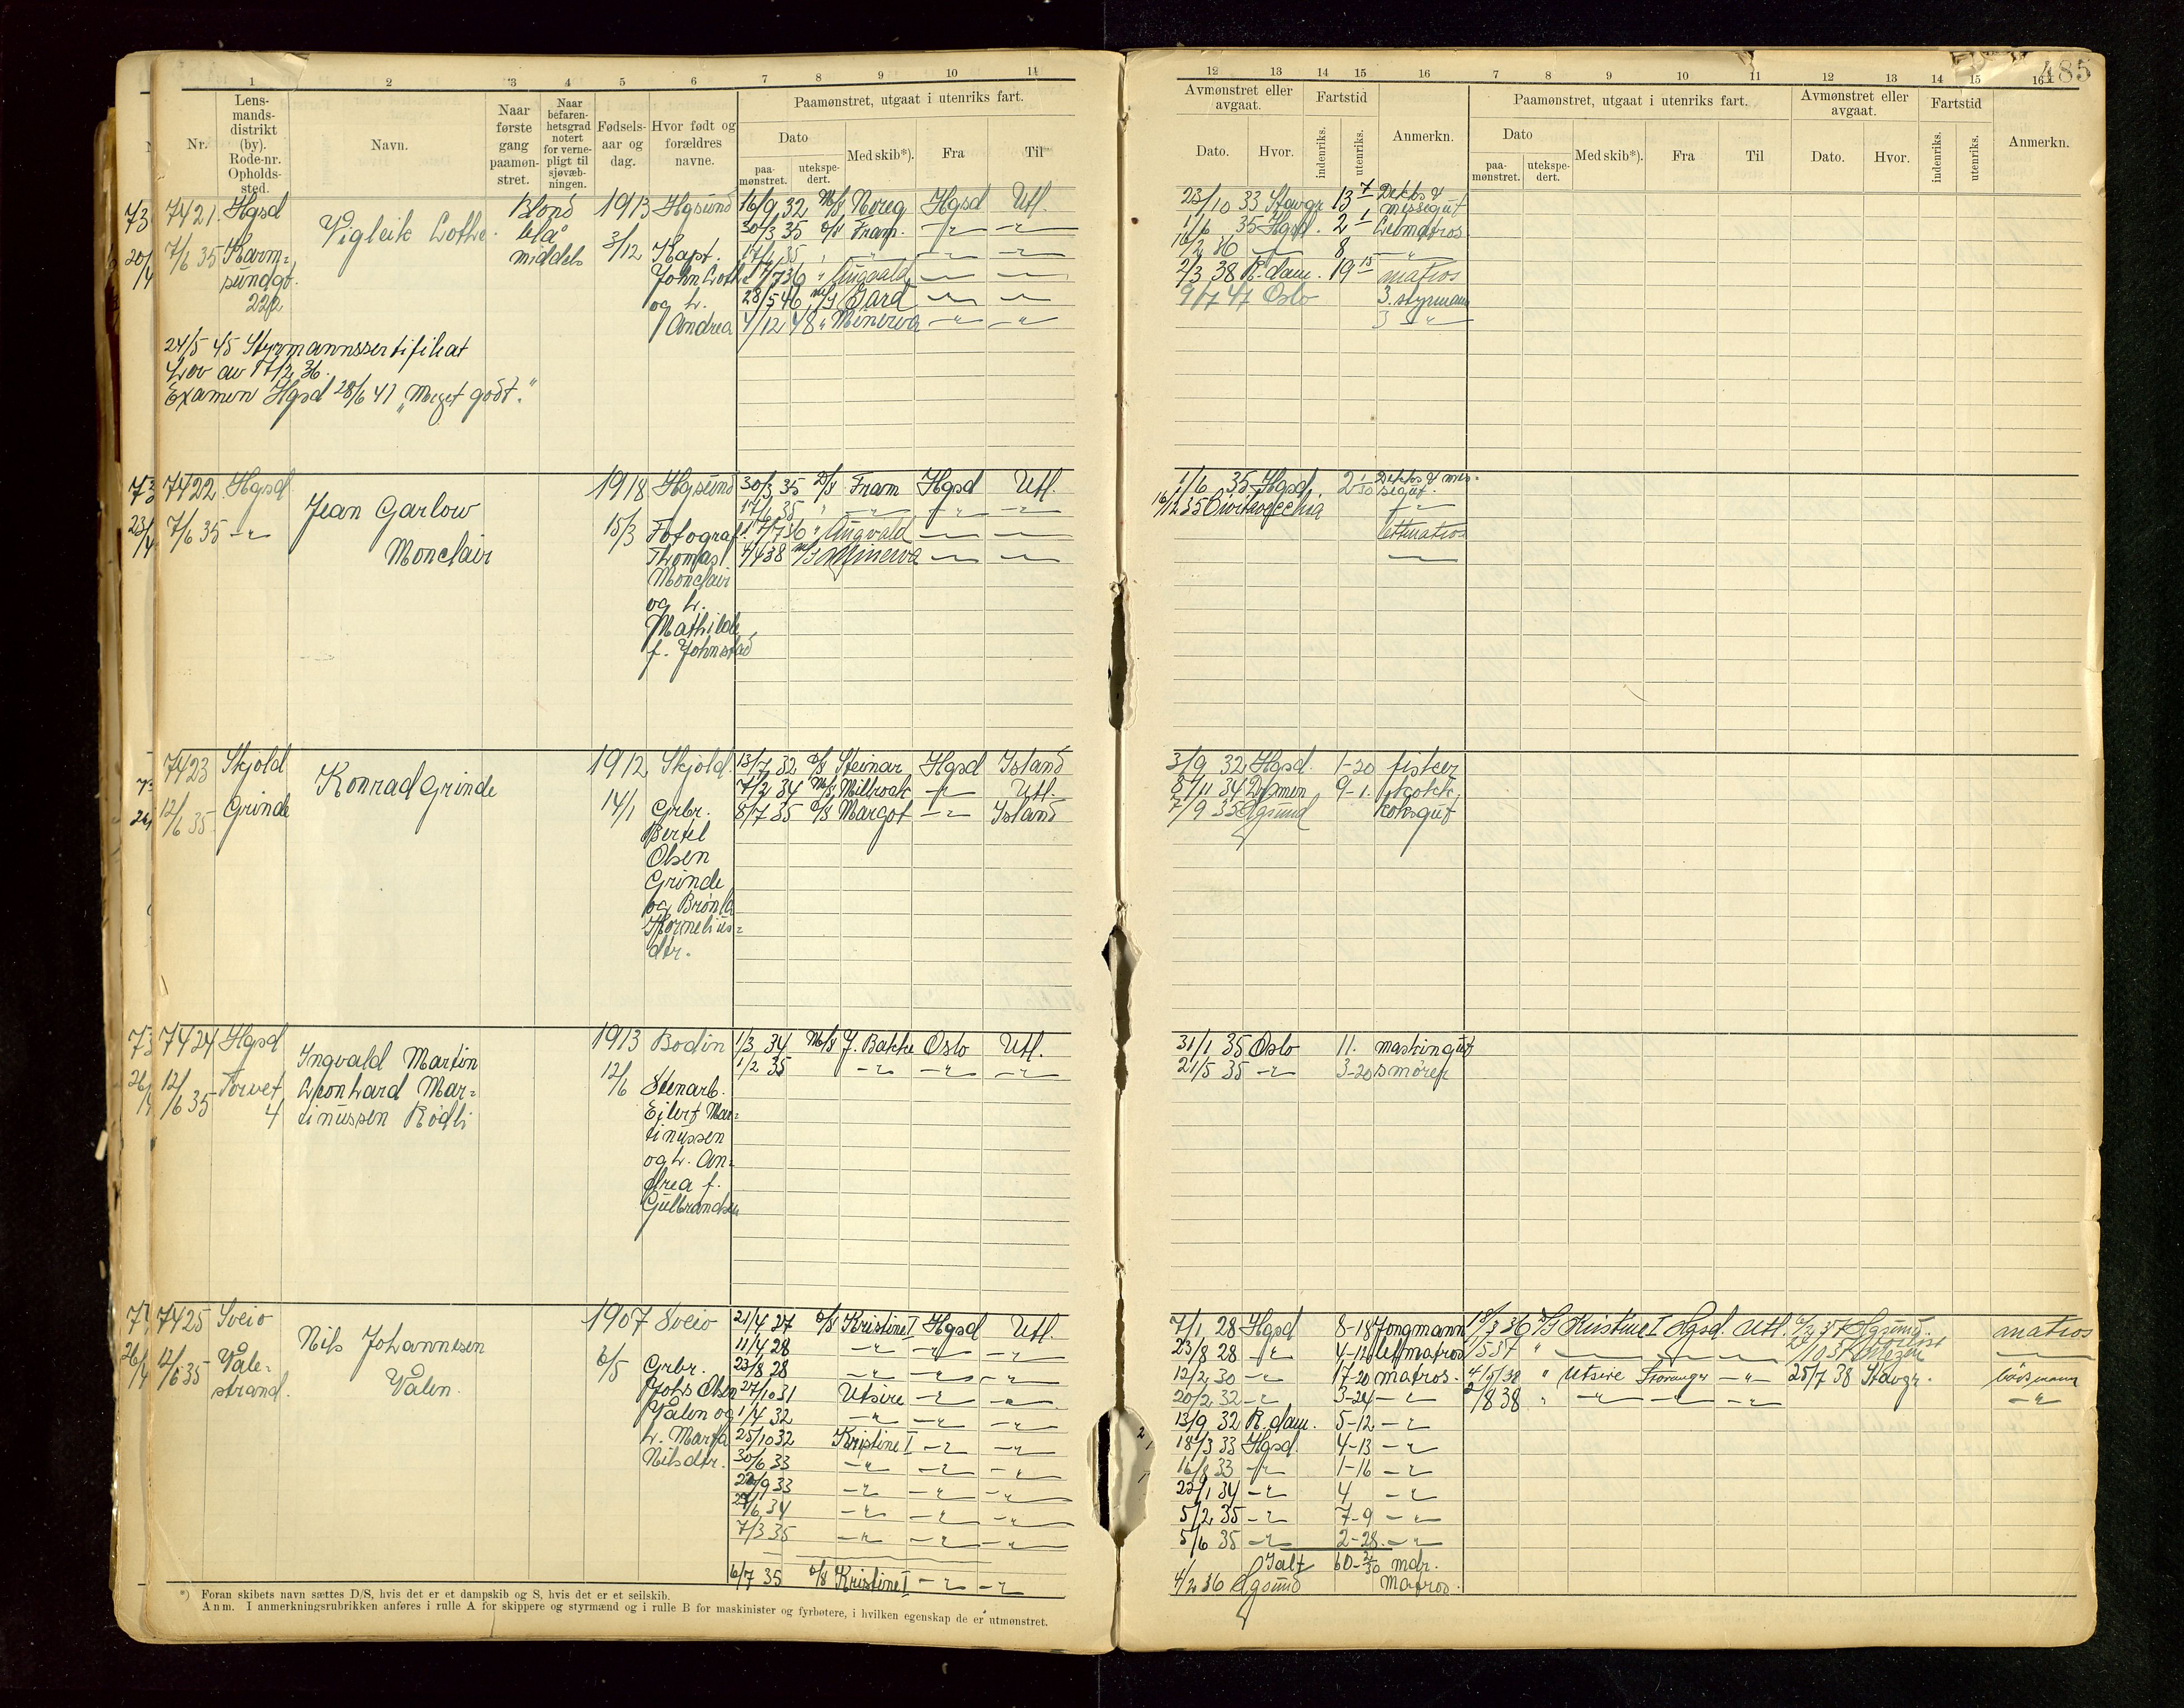 485
1 2 3 4 5 6 7 8 9 10 11
12 13 14 15 16 7 8 9 10 11 12 13 14 15 16
Nr.
Lens-
mands-
distrikt
(by).
Rode-nr.
Opholds-
sted.
Navn.
Naar
første
gang
paamøn-
stret.
Naar
befaren-
hetsgrad
notert
for verne-
pligt til
sjøvæb-
ningen.
Fødsels-
aar og
dag.
Hvor født og
forældres
navne.
Paamønstret, utgaat i utenriks fart.
Dato
paa-
mønstret.
utekspe-
dert.
Med skib*).
Fra
Til
Avmønstret eller
avgaat.
Dato.
Hvor.
Fartstid
indenriks.
utenriks.
Anmerkn.
Paamønstret, utgaat i utenriks fart.
Dato
paa-
mønstret.
utekspe-
dert.
Med skib*).
Fra
Til
Avmønstret eller
avgaat.
Dato.
Hvor.
Fartstid
indenriks.
utenriks.
Anmerkn.
7421
Hgsd
7/6 35
Karm-
sundgt.
222
Vigleik Lothe.
Blond
blå
middels
1913
3/12
Hgsund
Kapt.
John Lothe
og h.
Andrea
16/9 32 M/S Noreg Hgsd Utl.
30/3 35 D/S Fram. -"- -"-
17/6 35 " " -"-
17/7 36 " Augvald -"- -"-
28/5 46 M/S Gard -"- -"-
4/12 48 " Minerva -"- -"-
23/10 33 Stavgr 13 7 Dekks &
messegut
1/6 35 Hgsd. 2 1 Lettmatros
16/2 36 -"- 8 "
2/3 38 R.dam. 19 15 matros
9/7 47 Oslo 3. styrmann
3 -"-
24/5 45 Styrmannssertifikat
Lov av 17/2 36.
Examen Hgsd 28/6 41 "Meget godt."
7422
Hgsd
7/6 35 -"-
Jean Garlow
Monclair
1918
15/3
Hgsund
Fotograf
Thomas
Monclair
og h.
Mathilde
f. Johnstad
30/3 35 D/S Fram Hgsd Utl.
17/6 35 " -"- -"- -"-
17/7 36 " Augvald -"- -"-
4/4 38 M/S Minerva -"- -"-
1/6 35 Hgsd. 2 1/30 Dekks & mes-
segut.
16/12 35 Civitavecchia -"-
lettmatros
-"-
7423
Skjold
12/6 35
Grinde
Konrad Grinde
1912
14/1
Skjold.
Grbr.
Bertel
Olsen
Grinde
og Brønla
Kornelius-
dtr.
13/7 32 D/S Steinar Hgsd Island
7/2 34 M/S Milbrook -"- Utl.
8/7 35 D/S Margot -"- Island
3/9 32 Hgsd. 1-20 fisker
8/11 34 9-1. kokk.
7/9 35 Hgsund koksgut
7424
Hgsd
12/6 35
Torvet
4
Ingvald Martin
Leonhard Mar-
tinussen Rødli
1913
12/6
Bodin
Stenarb.
Eilert Mar-
tinussen
og h. An-
drea f.
Gulbrandsen
1/3 34 M/S J. Bakke Oslo Utl.
1/2 35 -"- -"- -"-
31/1 35 Oslo 11. maskingut
21/5 35 -"- 3-20 smører
7425
Sveio
12/6 35
Vale-
strand.
Nils Johannesen
Valen.
1907
6/5
Sveio
Grbr.
Johs Olsen
Valen og
h. Marta
Nilsdtr.
21/4 27 D/S Kristine I Hgsd Utl.
11/4 28 -"- -"- -"-
23/8 28 -"- -"- -"-
27/10 31 Utsire -"- -"-
1/4 32 -"- -"- -"-
25/10 32 Kristine I -"- -"-
30/6 33 -"- -"- -"-
22/9 33 -"- -"- -"-
27/6 34 -"- -"- -"-
7/3 35 -"- -"- -"-
6/7 35 D/S Kristine I -"- -"-
7/1 28 Hgsd 8-18 Jongmann
23/8 28 -"- 4-12 lettmatros
12/2 30 -"- 17-20 matros.
20/2 32 -"- 3-24 -"-
13/9 32 R.dam. 5-12 -"-
18/3 33 Hgsd. 4-13 -"-
16/8 33 -"- 1-16 -"-
22/1 34 -"- 4 -"-
5/2 35 -"- 7-9 -"-
5/6 35 -"- 2-28 -"-
Ialt 60- mdr.
4/2 36 Hgsund Matros.
18/3 36 D/S Kristine I Hgsd. Utl. Hgsund. matros
4/5 38 " Utsire Stavanger -"- 25/7 38 Stavgr. båtsmann
2/8 38 " -"- -"- -"- -"-
*) Foran skibets navn sættes D/S, hvis det er et dampskib og S, hvis det er et seilskib.
Anm. I anmerkningsrubrikken anføres i rulle A for skippere og styrmænd og i rulle B for maskinister og fyrbøtere, i hvilken egenskap de er utmønstret.